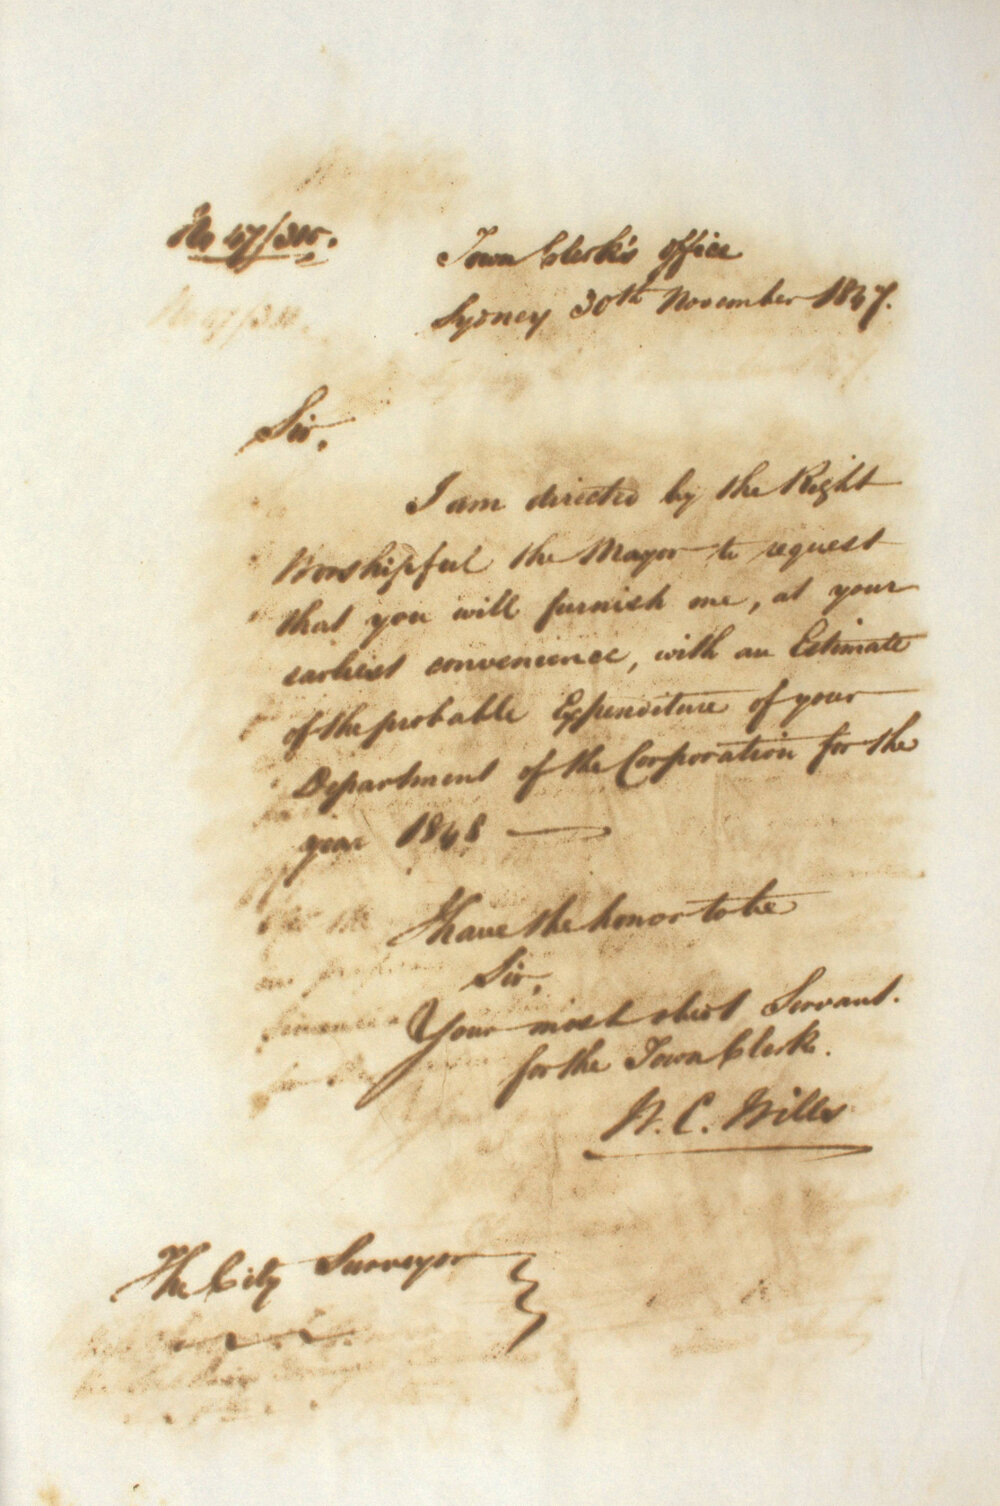 No 47/310.
Town Clerk's office
Sydney 30th November 1847.
Sir,
I am directed by the Right
Worshipful the Mayor to request
that you will furnish me, at your
earliest convenience, with an Estimate
of the probable Expenditure of your
Department of the Corporation for the
year 1848
I have the honor to be
Sir,
Your most obedt Servant.
for the Town Clerk.
W. C. Wills
The City Surveyor